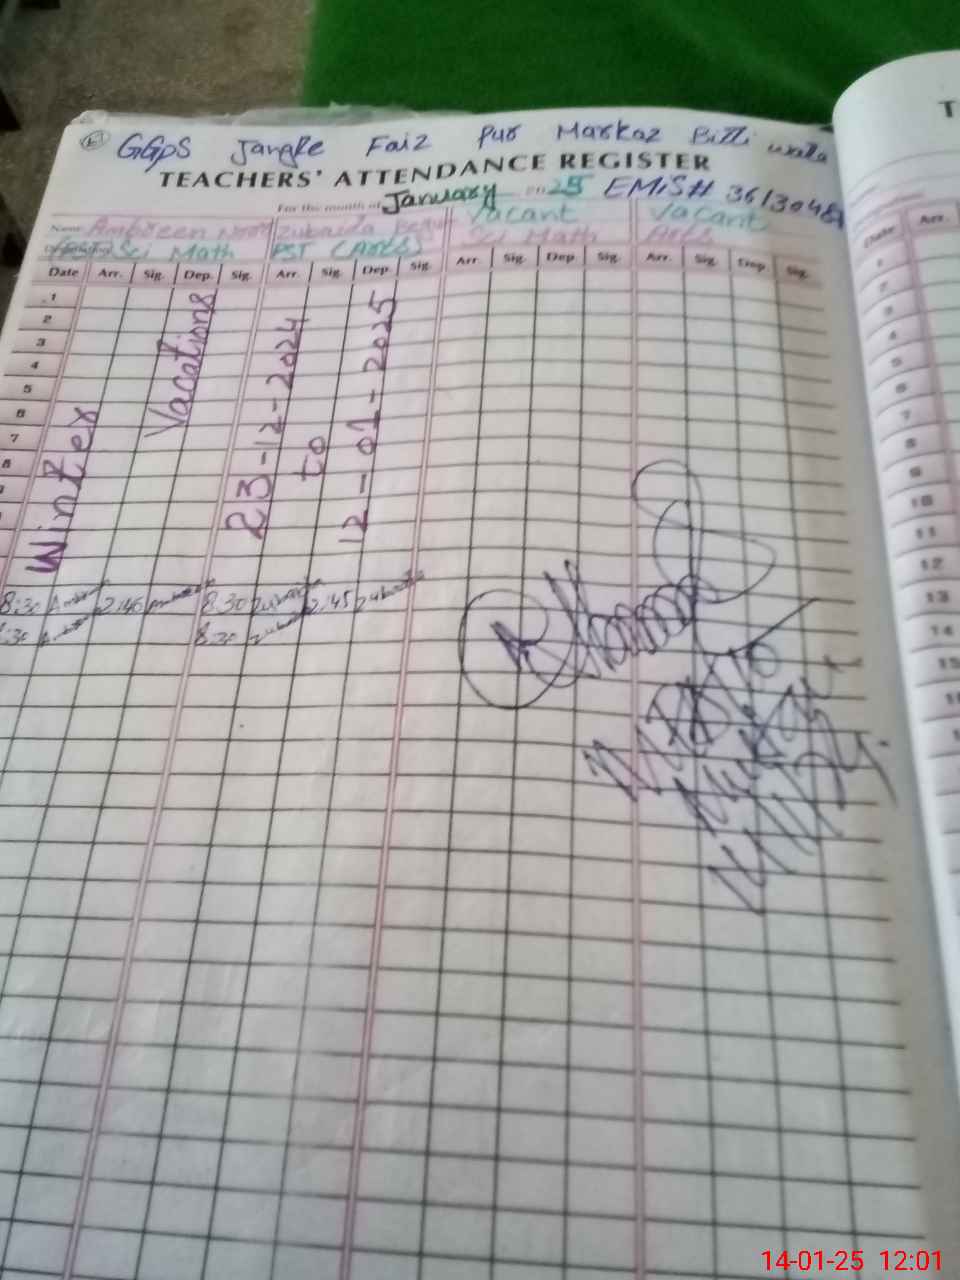 GGPS Jangle Faiz Pur Markaz Billi wala
TEACHERS' ATTENDANCE REGISTER
For the month of January 2025 EMIS# 3613048
Name Ambreen Noor Zubaida Begum Vacant Vacant
Designation PST Sci Math PST (Arts) Sci Math Arts
Date Arr. Sig. Dep. Sig. Arr. Sig. Dep. Sig. Arr. Sig. Dep. Sig. Arr. Sig. Dep. Sig.
1
2
3
4
5
6
7
8
9
Winter Vacations 23-12-2024 to 12-01-2025
8:30 Ambreen 2:45 Ambreen 8:30 Zubaida 2:45 Zubaida
:30 Ambreen 8:30 Zubaida
T
Date Arr.
1
2
3
4
5
6
7
8
9
10
11
12
13
14
15
14-01-25 12:01